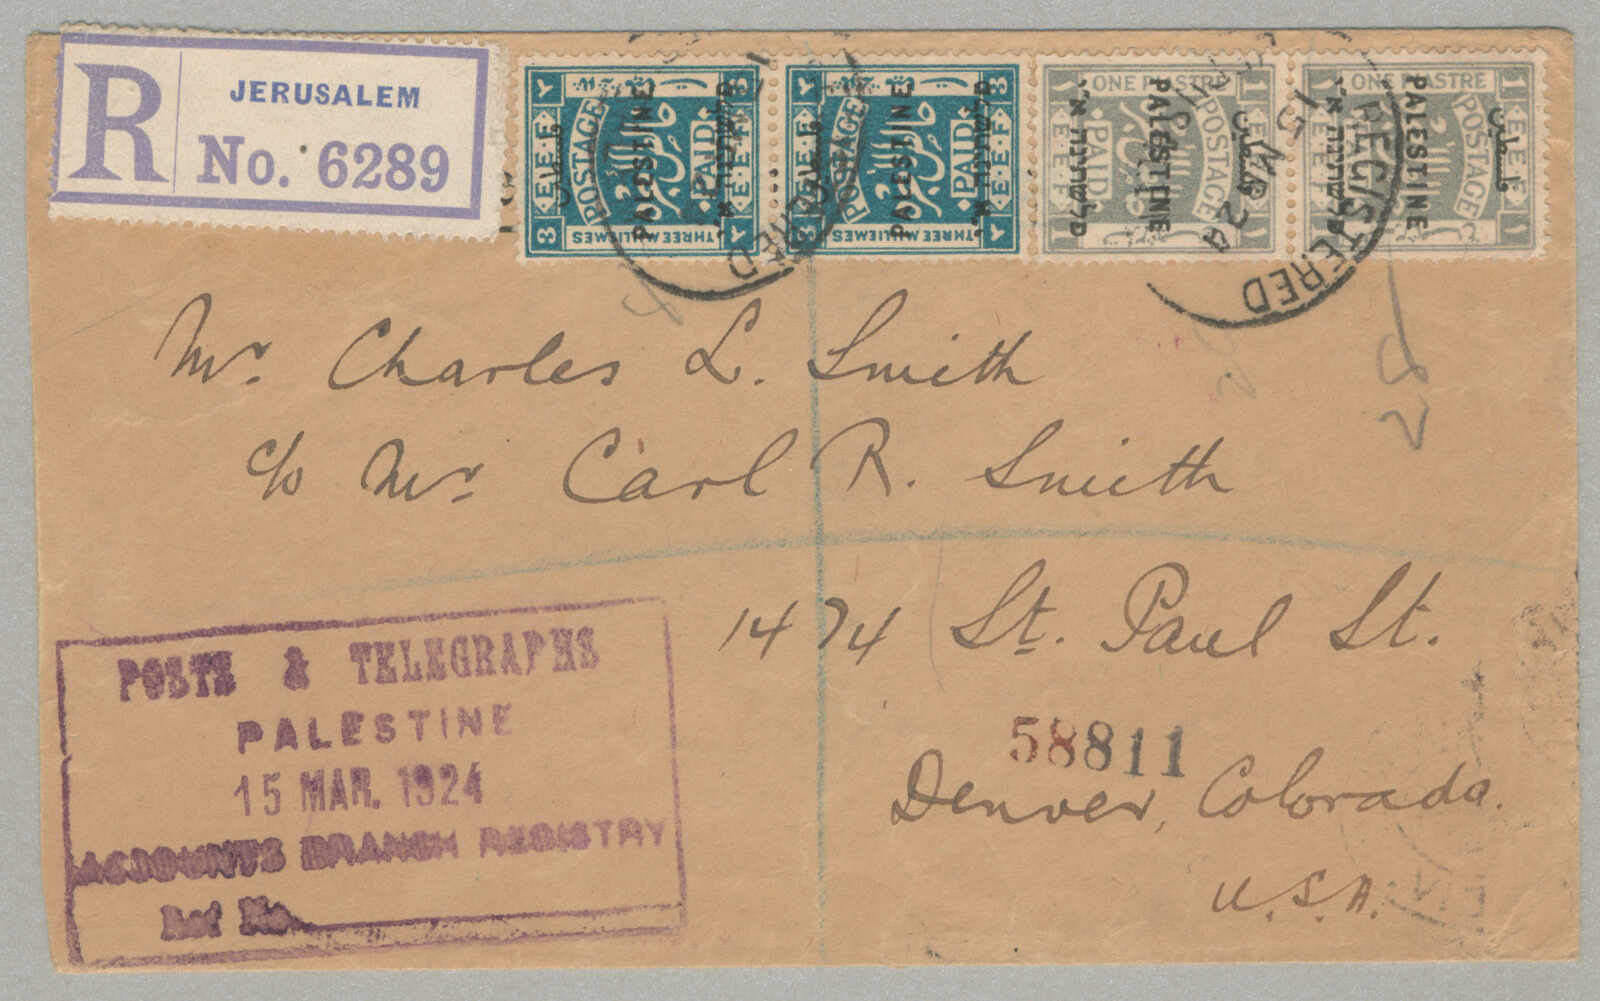 R
JERUSALEM
No. 6289
PALESTINE
POSTAGE
PAID
E.E.F.
THREE MILLIEMES
3
3
PALESTINE
POSTAGE
PAID
E.E.F.
THREE MILLIEMES
3
3
ONE PIASTRE
PALESTINE
فلسطين
פלשתינה א״י
POSTAGE
PAID
E.E.F.
1
ONE PIASTRE
PALESTINE
فلسطين
פלשתינה א״י
POSTAGE
E.E.F.
1
REGISTERED
15 MR 24
28
Mr. Charles L. Smith
c/o Mr. Carl R. Smith
1474 St. Paul St.
58811
Denver, Colorado.
U.S.A.
POSTS & TELEGRAPHS
PALESTINE
15 MAR. 1924
ACCOUNTS BRANCH REGISTRY
Ref No.